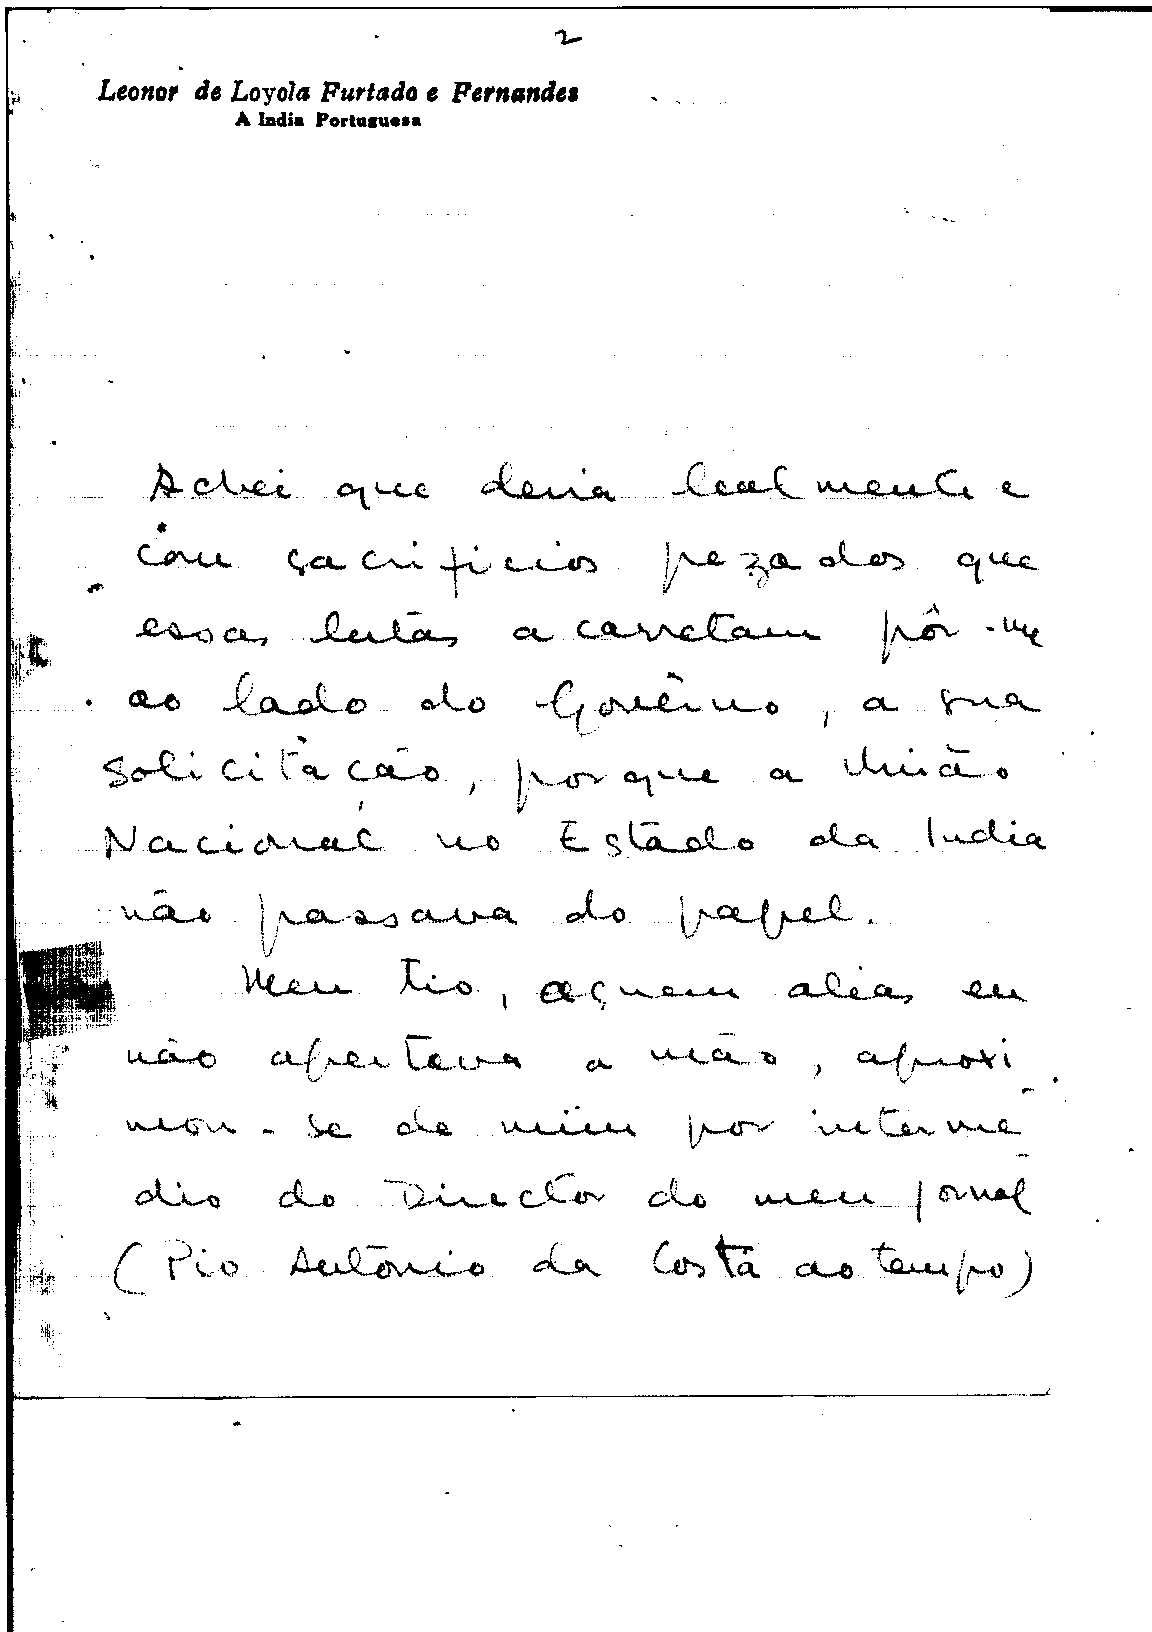 2
Leonor de Loyola Furtado e Fernandes
A India Portuguesa
Achei que devia lealmente e
com sacrificios pezados que
essas lutas acarretam pôr-me
ao lado do Govêrno, a sua
solicitação, porque a União
Nacional no Estado da India
não passava do papel.
Meu tio, aquem aliás eu
não apertava a mão, aproxi
mou-se de mim por intermé
dio do Director do meu jornal
(Pio António da Costa ao tempo)